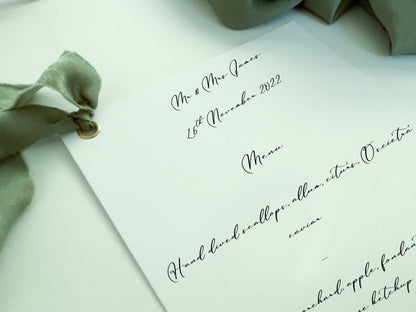 Mr & Mrs James
26th November 2022
Menu
Hand dived scallops, citrus, Oscietra
caviar
–
apple, fondant
ketchup